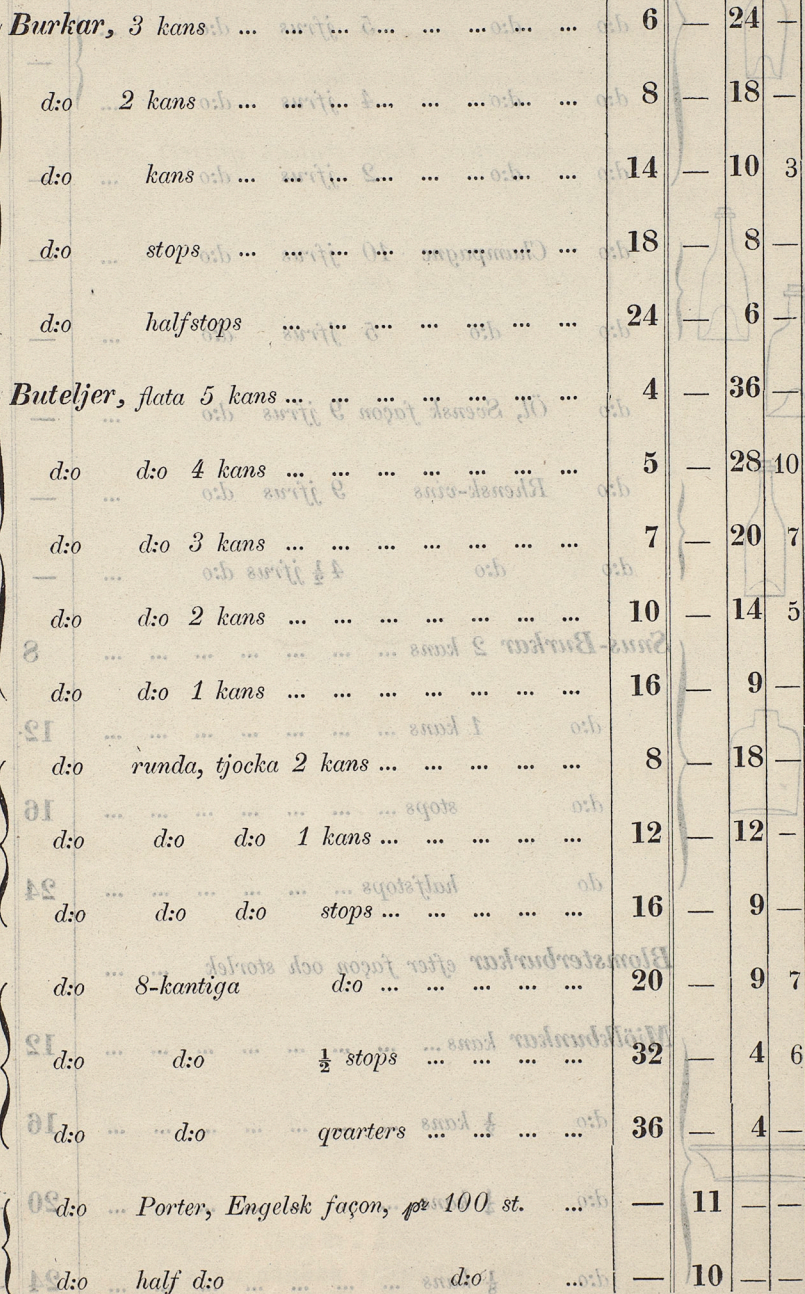 Burkar, 3 kans ... ... ... ... ... ... ... ... 6 — 24 —
d:o 2 kans ... ... ... ... ... ... ... ... 8 — 18 —
d:o kans ... ... ... ... ... ... ... ... 14 — 10 3
d:o stops ... ... ... ... ... ... ... ... 18 — 8 —
d:o halfstops ... ... ... ... ... ... ... 24 — 6 —
Buteljer, flata 5 kans ... ... ... ... ... ... ... 4 — 36 —
d:o d:o 4 kans ... ... ... ... ... ... ... 5 — 28 10
d:o d:o 3 kans ... ... ... ... ... ... ... 7 — 20 7
d:o d:o 2 kans ... ... ... ... ... ... ... 10 — 14 5
d:o d:o 1 kans ... ... ... ... ... ... ... 16 — 9 —
d:o runda, tjocka 2 kans ... ... ... ... ... 8 — 18 —
d:o d:o d:o 1 kans ... ... ... ... ... 12 — 12 —
d:o d:o d:o stops ... ... ... ... ... 16 — 9 —
d:o 8-kantiga d:o ... ... ... ... ... 20 — 9 7
d:o d:o ½ stops ... ... ... ... 32 — 4 6
d:o d:o qvarters ... ... ... ... 36 — 4 —
d:o Porter, Engelsk façon, pr 100 st. ... — 11 — —
d:o half d:o d:o ... — 10 — —